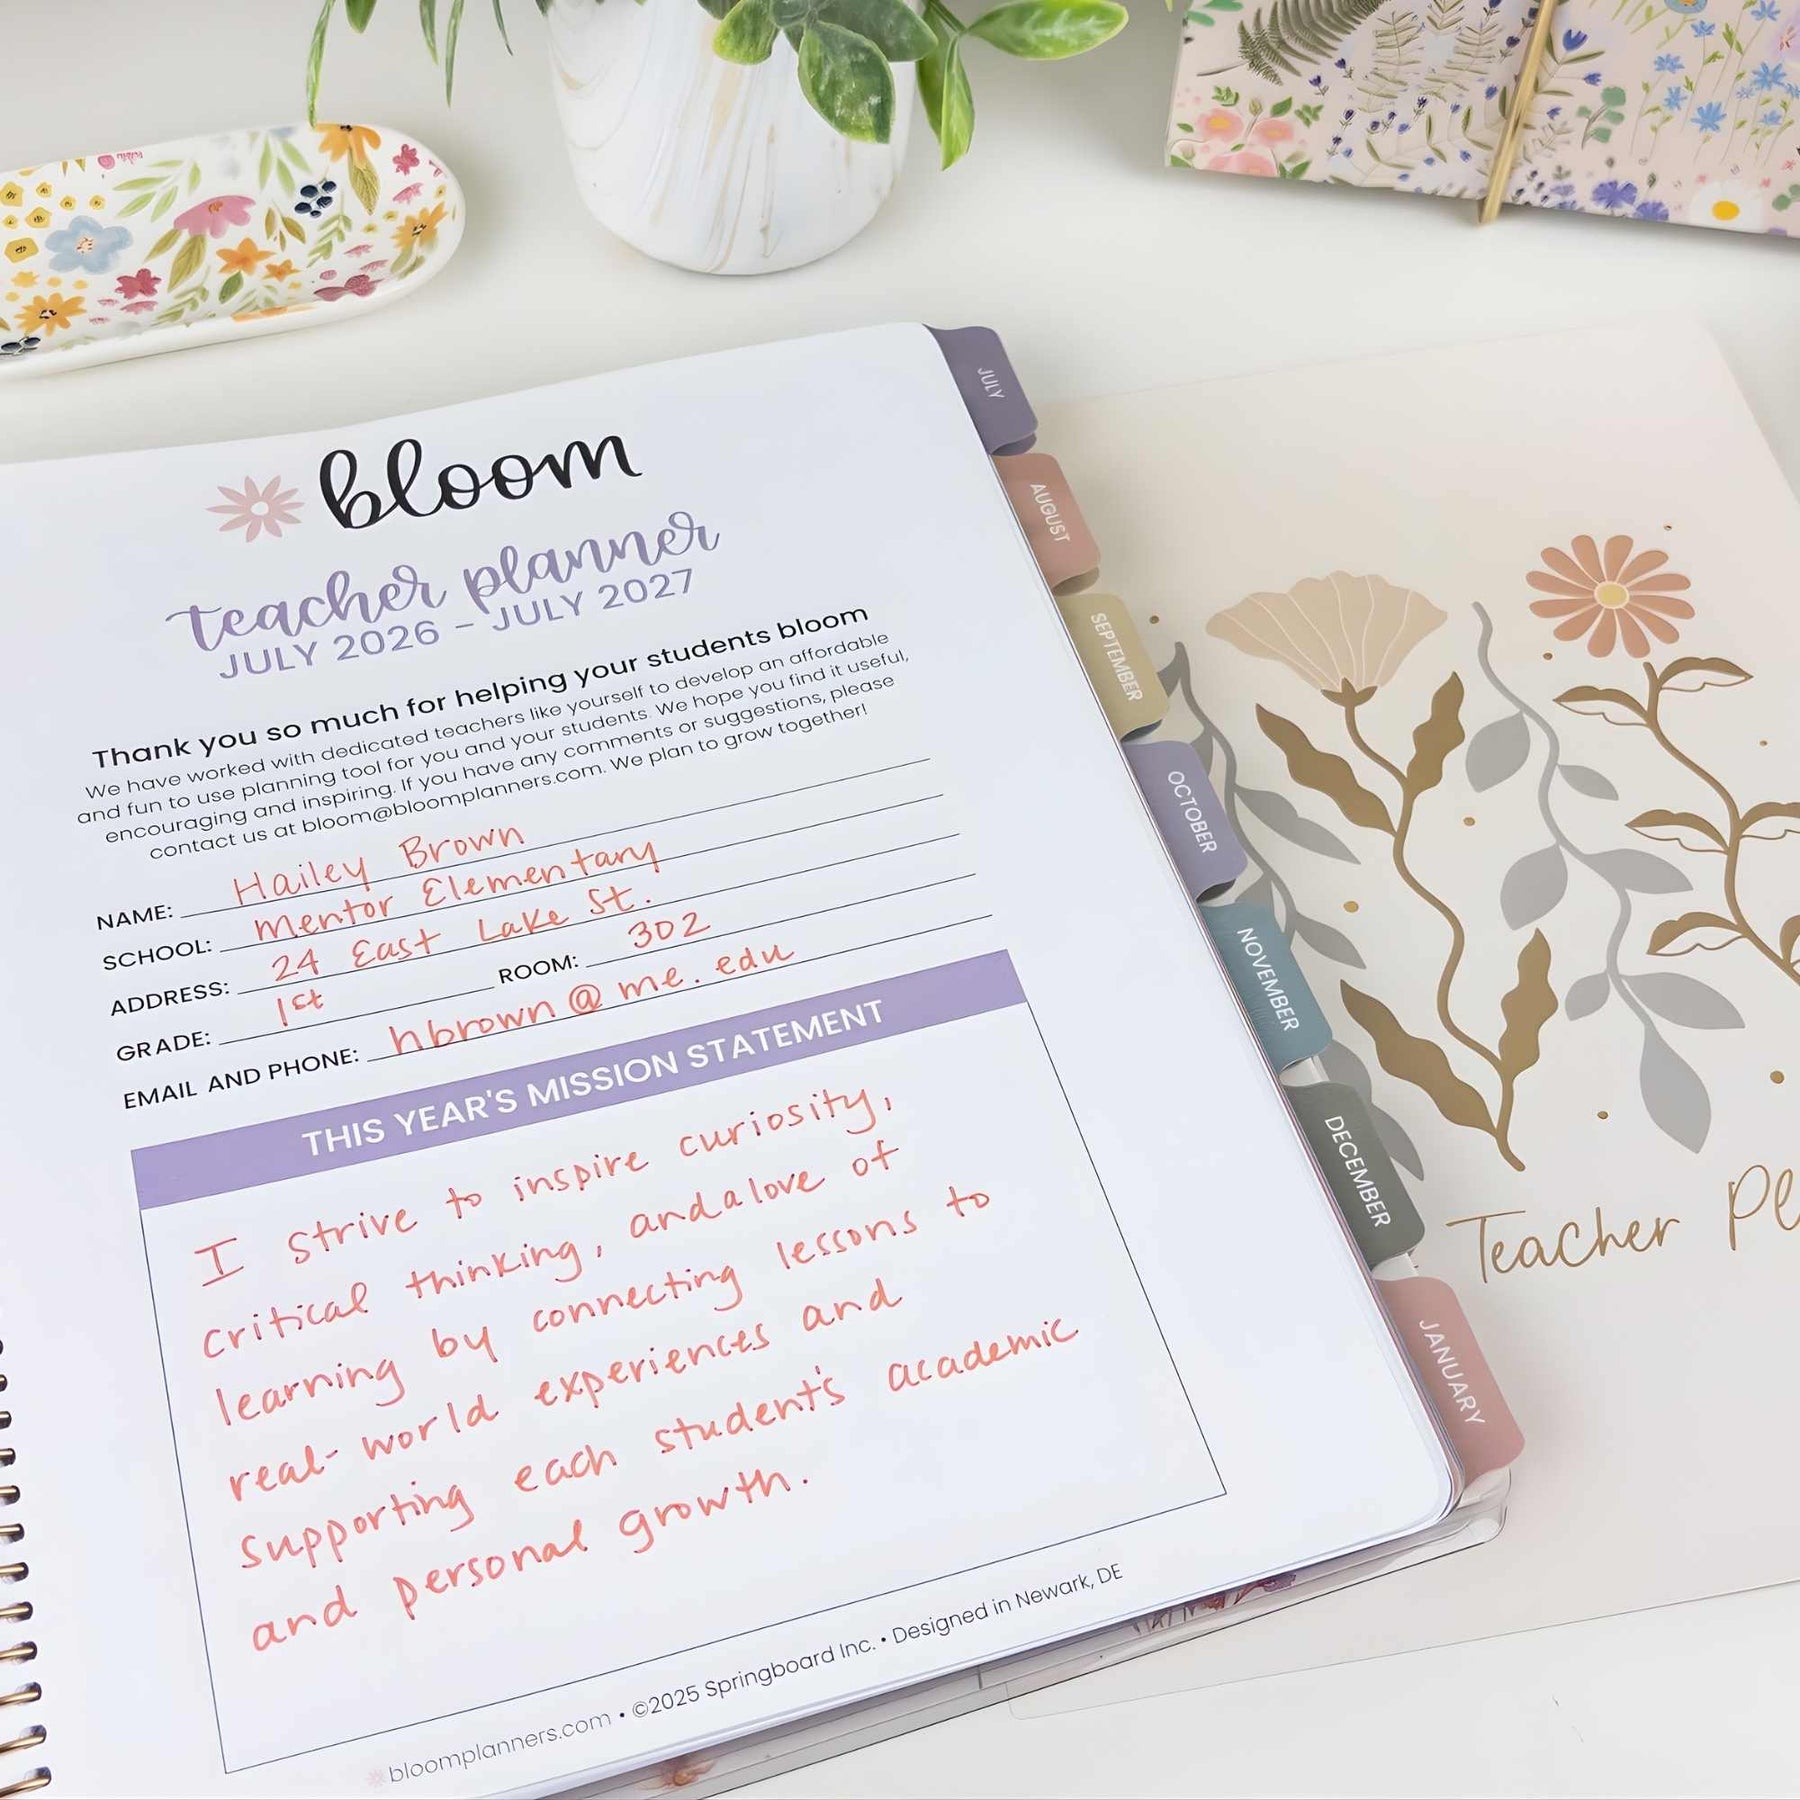 bloom
teacher planner
JULY 2026 – JULY 2027
Thank you so much for helping your students bloom
We have worked with dedicated teachers like yourself to develop an affordable
and fun to use planning tool for you and your students. We hope you find it useful,
encouraging and inspiring. If you have any comments or suggestions, please
contact us at bloom@bloomplanners.com. We plan to grow together!
NAME: Hailey Brown
SCHOOL: Mentor Elementary
ADDRESS: 24 East Lake St.
GRADE: 1st ROOM: 302
EMAIL AND PHONE: hbrown@me.edu
THIS YEAR'S MISSION STATEMENT
I strive to inspire curiosity,
critical thinking, and a love of
learning by connecting lessons to
real-world experiences and
supporting each student's academic
and personal growth.
bloomplanners.com • ©2025 Springboard Inc. • Designed in Newark, DE
JULY
AUGUST
SEPTEMBER
OCTOBER
NOVEMBER
DECEMBER
JANUARY
Teacher Pl